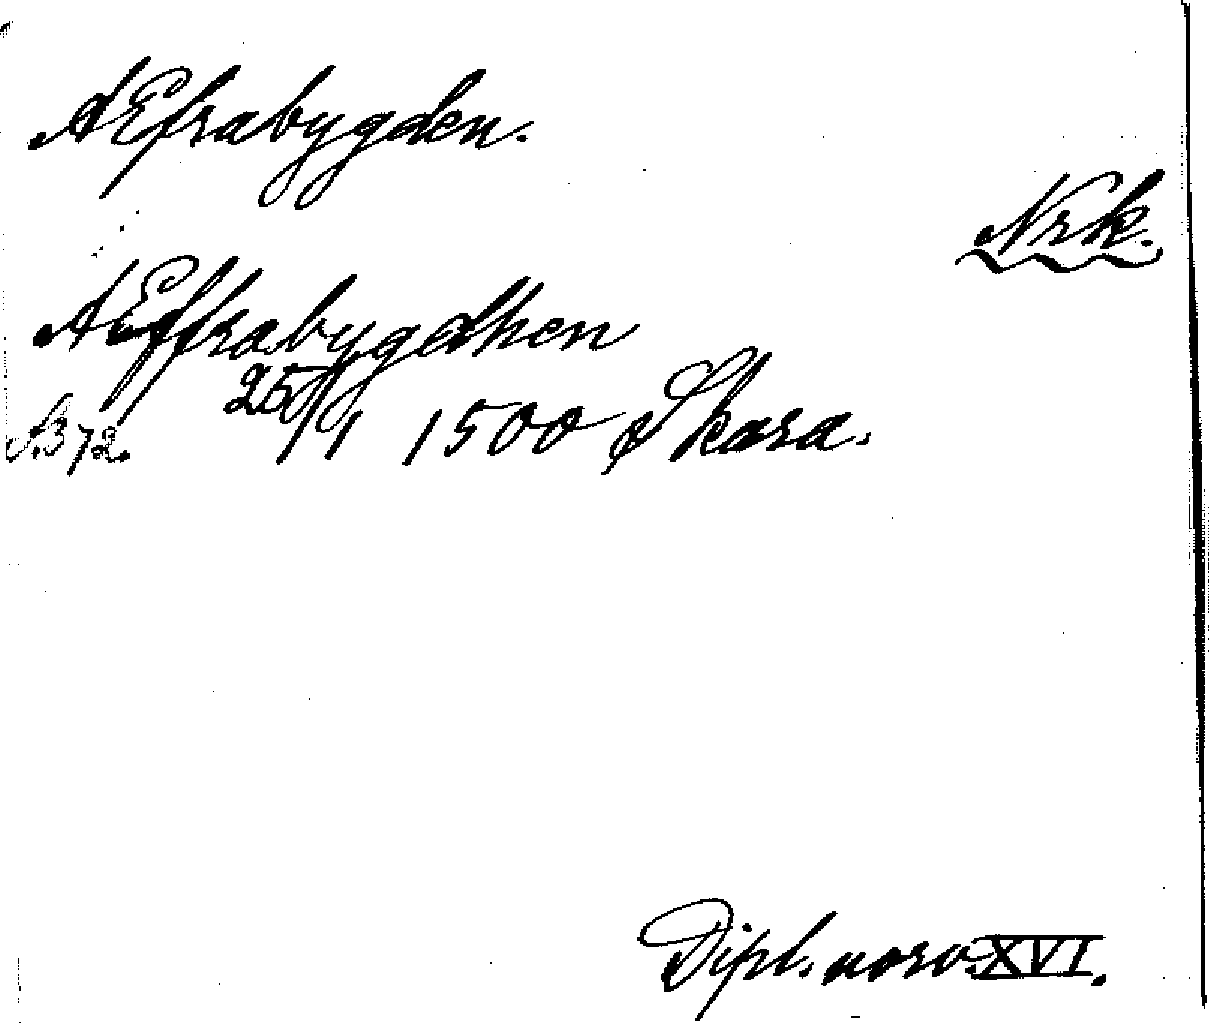 AEfrabygden.
Nrk.
AEffrabygdhen
S.372. 25/1 1500 Skara.
Dipl. norv. XVI.